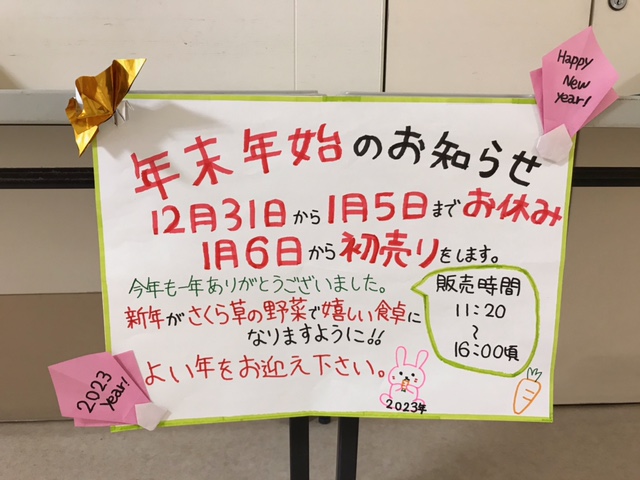 Happy
New
year!
年末年始のお知らせ
12月31日から1月5日までお休み
1月6日から初売りをします。
今年も一年ありがとうございました。
新年がさくら草の野菜で嬉しい食卓に
なりますように!!
よい年をお迎え下さい。
販売時間
11:20
~
16:00頃
2023年
2023
year!